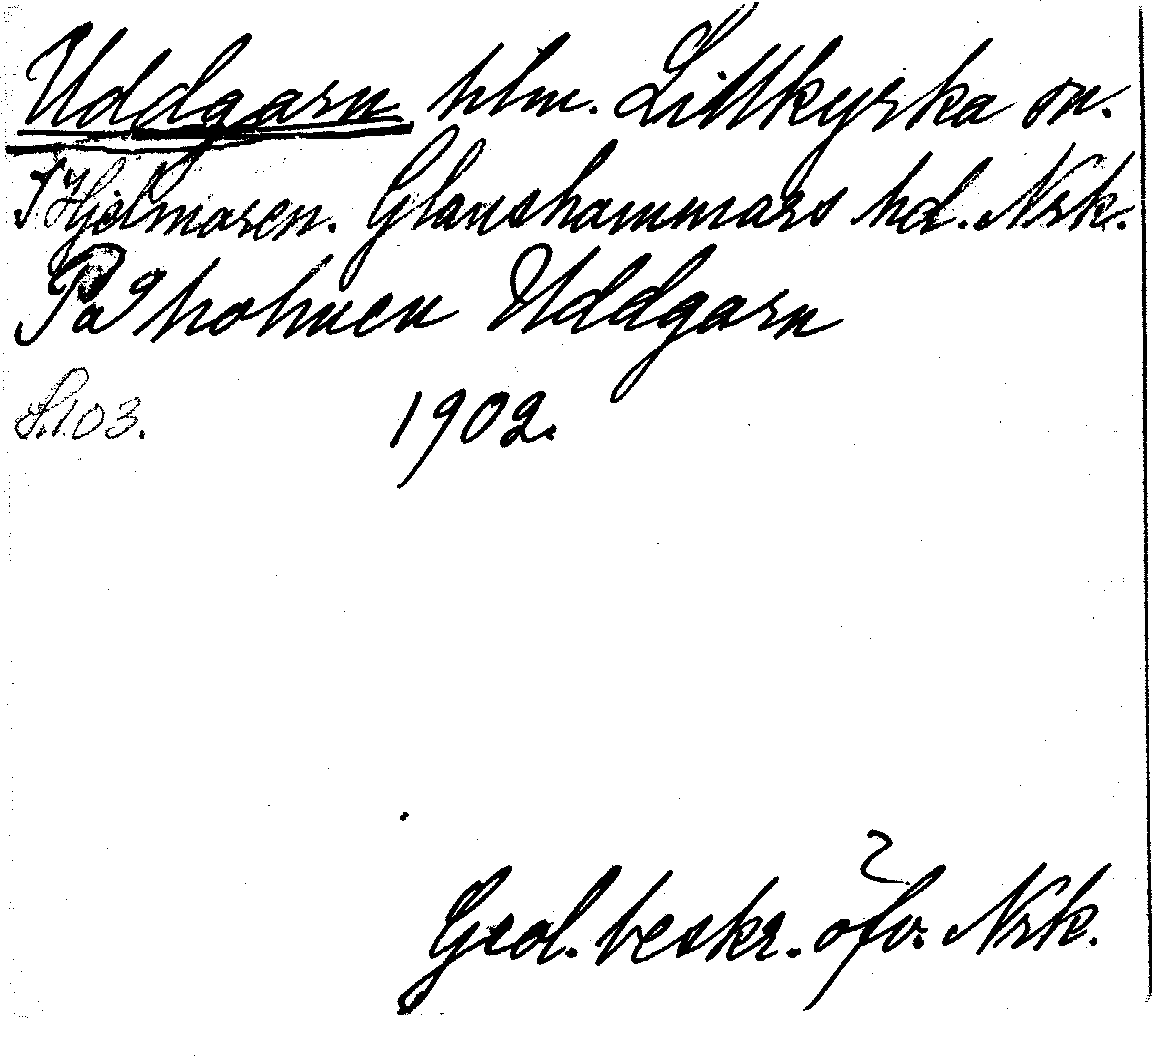 Uddgarn hlm. Lillkyrka sn.
I Hjelmaren. Glanshammars hd. Nrk.
På holmen Uddgarn
S. 103. 1902.
Geol. beskr. öfv. Nrk.